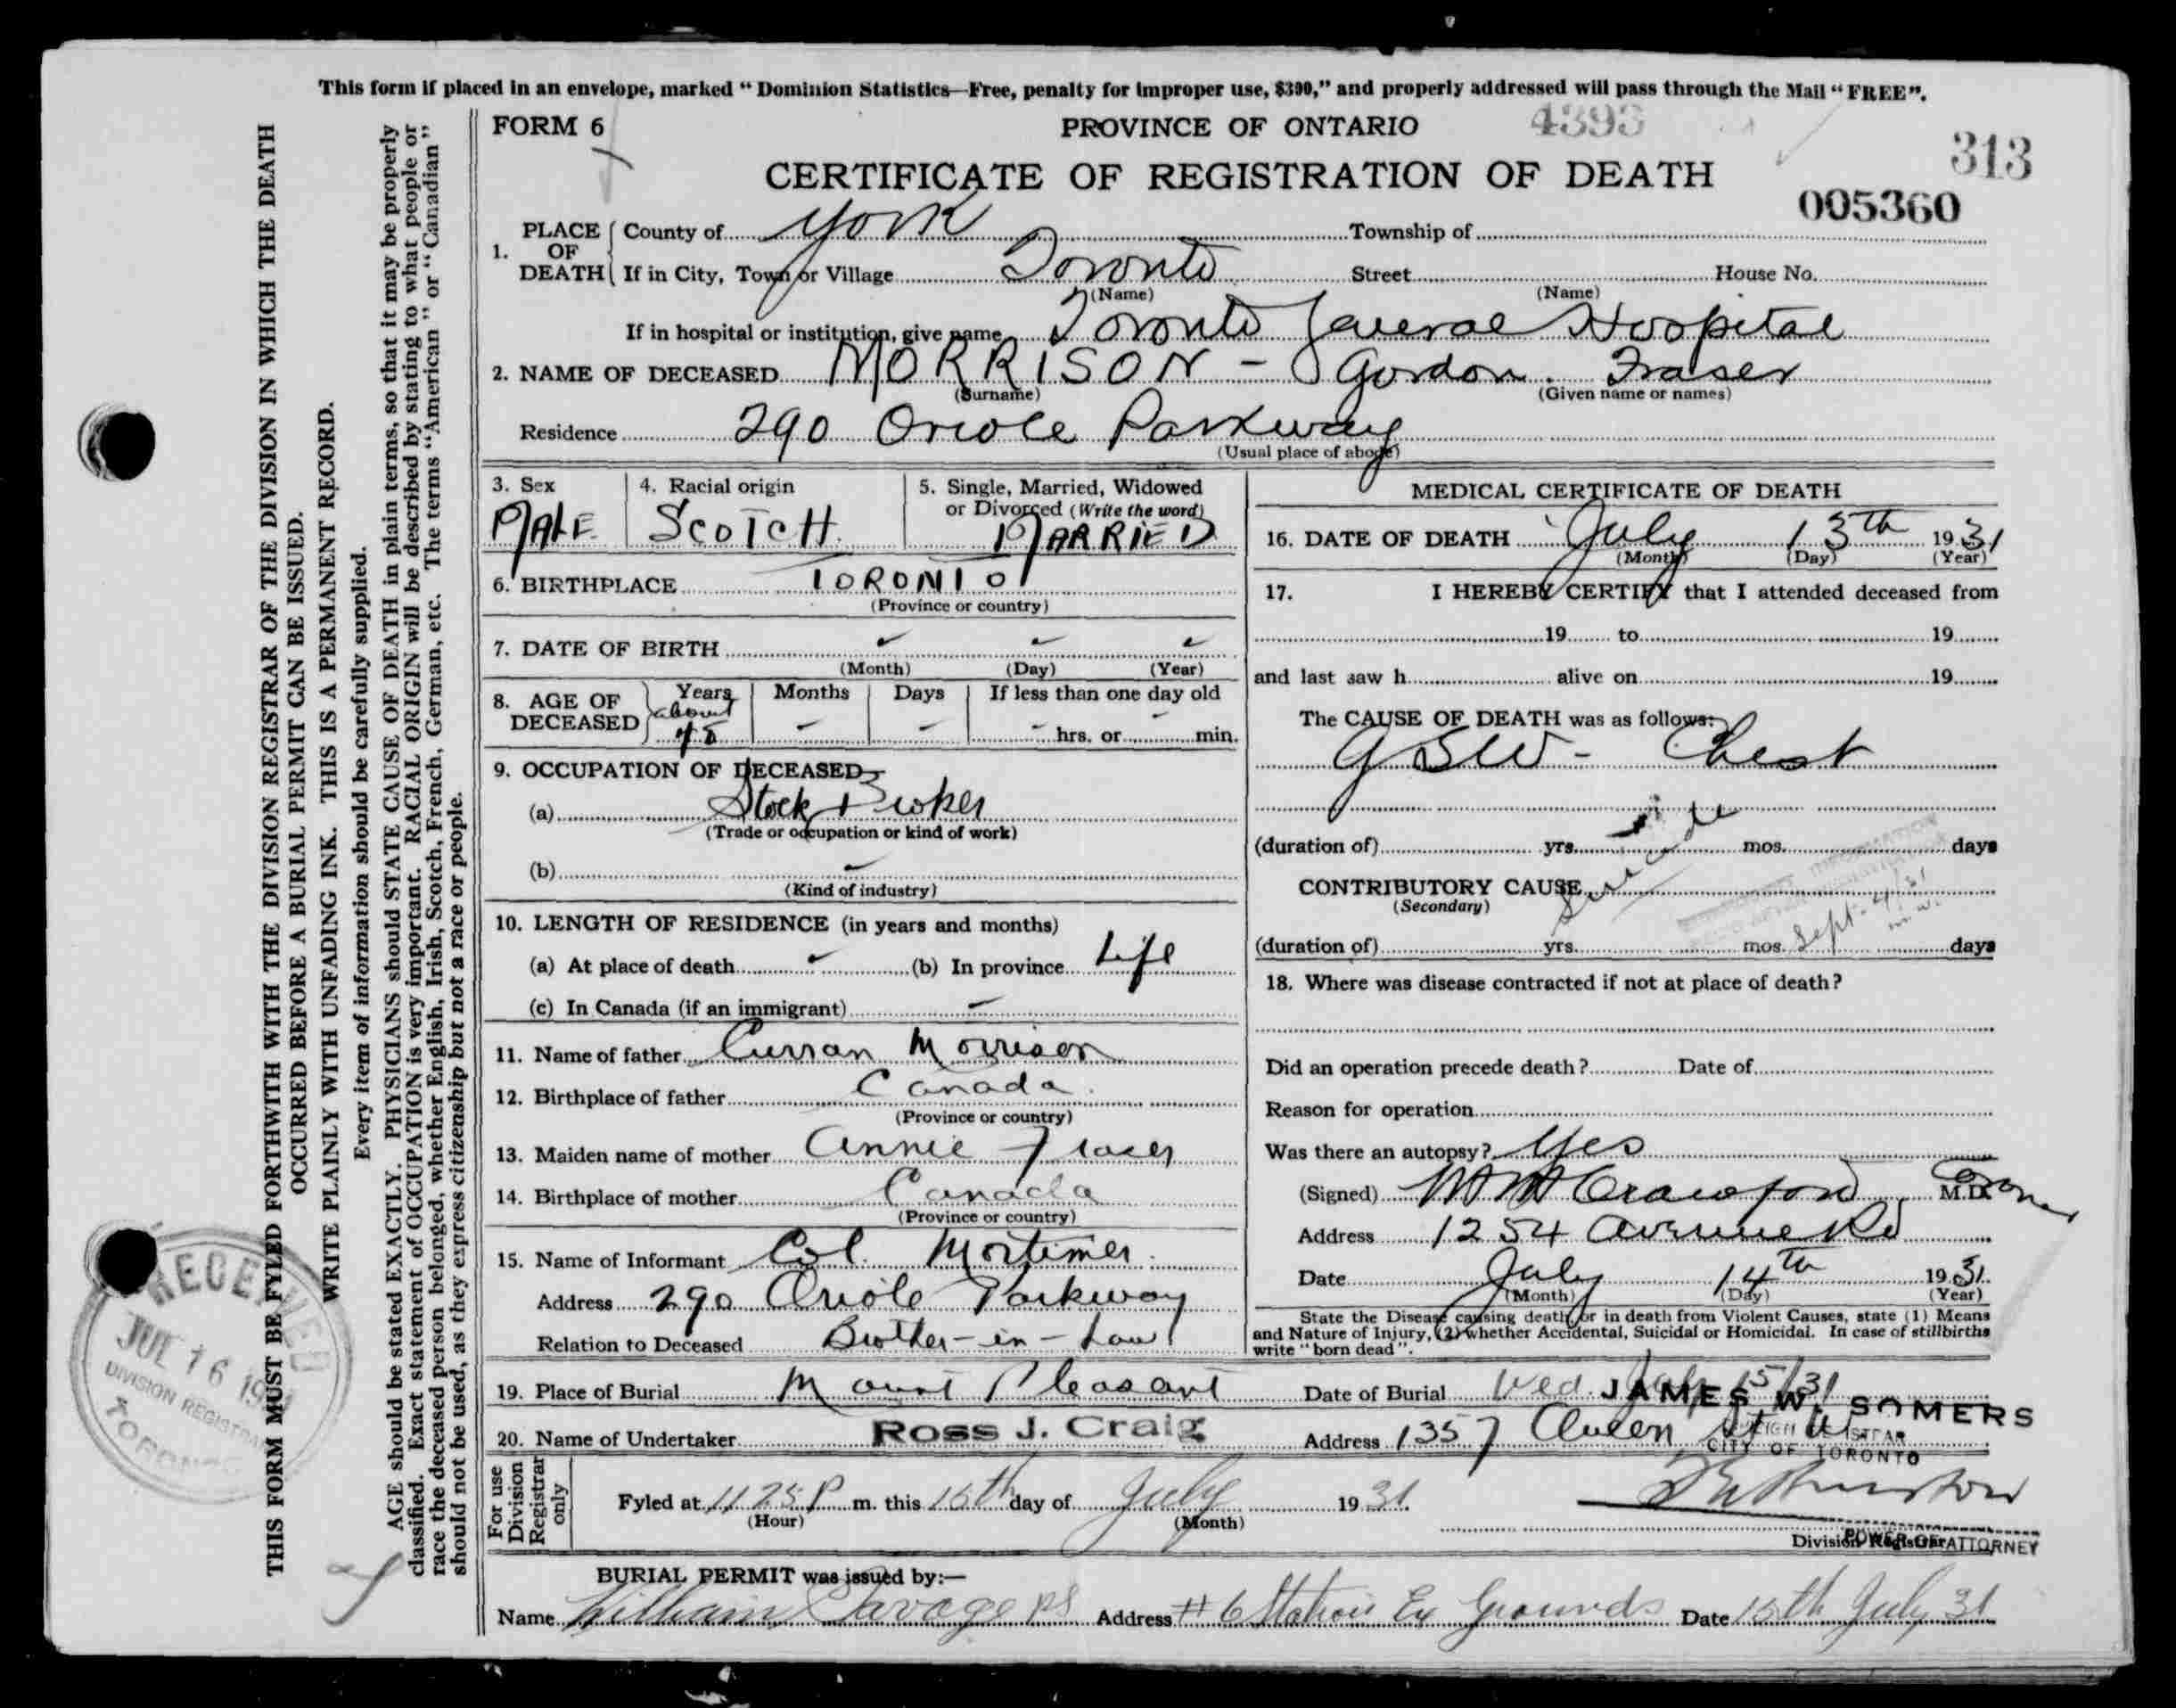 This form if placed in an envelope, marked "Dominion Statistics—Free, penalty for improper use, $300," and properly addressed will pass through the Mail "FREE".
THIS FORM MUST BE FYLED FORTHWITH WITH THE DIVISION REGISTRAR OF THE DIVISION IN WHICH THE DEATH
OCCURRED BEFORE A BURIAL PERMIT CAN BE ISSUED.
WRITE PLAINLY WITH UNFADING INK. THIS IS A PERMANENT RECORD.
Every item of information should be carefully supplied.
AGE should be stated EXACTLY. PHYSICIANS should STATE CAUSE OF DEATH in plain terms, so that it may be properly
classified. Exact statement of OCCUPATION is very important. RACIAL ORIGIN will be described by stating to what people or
race the deceased person belonged, whether English, Irish, Scotch, French, German, etc. The terms "American" or "Canadian"
should not be used, as they express citizenship but not a race or people.
RECEIVED
JUL 16 19
DIVISION REGISTRAR
TORONTO
FORM 6 PROVINCE OF ONTARIO 4393
313
CERTIFICATE OF REGISTRATION OF DEATH
005360
1. PLACE OF DEATH County of York Township of
If in City, Town or Village Toronto Street House No.
(Name) (Name)
If in hospital or institution, give name Toronto General Hospital
2. NAME OF DECEASED MORRISON - Gordon Fraser
(Surname) (Given name or names)
Residence 290 Oriole Parkway
(Usual place of abode)
3. Sex 4. Racial origin 5. Single, Married, Widowed
or Divorced (Write the word)
MALE SCOTCH MARRIED
6. BIRTHPLACE TORONTO
(Province or country)
7. DATE OF BIRTH
(Month) (Day) (Year)
8. AGE OF DECEASED Years Months Days If less than one day old
about
- - - hrs. or - min.
9. OCCUPATION OF DECEASED
(a) Stock Broker
(Trade or occupation or kind of work)
(b)
(Kind of industry)
10. LENGTH OF RESIDENCE (in years and months)
(a) At place of death (b) In province Life
(c) In Canada (if an immigrant) -
11. Name of father Curran Morrison
12. Birthplace of father Canada
(Province or country)
13. Maiden name of mother Annie Fraser
14. Birthplace of mother Canada
(Province or country)
15. Name of Informant Col. Mortimer
Address 290 Oriole Parkway
Relation to Deceased Brother-in-Law
MEDICAL CERTIFICATE OF DEATH
16. DATE OF DEATH July 13th 1931
(Month) (Day) (Year)
17. I HEREBY CERTIFY that I attended deceased from
19 to 19
and last saw h alive on 19
The CAUSE OF DEATH was as follows:
GSW - Chest
(duration of) yrs. mos. days
CONTRIBUTORY CAUSE Suicide
(Secondary)
(duration of) yrs. mos. days
Sept. 4/31
18. Where was disease contracted if not at place of death?
Did an operation precede death? Date of
Reason for operation
Was there an autopsy? Yes
(Signed) Crawford M.D. Coroner
Address 1254 Avenue Rd
Date July 14th 1931
(Month) (Day) (Year)
State the Disease causing death, or in death from Violent Causes, state (1) Means
and Nature of Injury, (2) whether Accidental, Suicidal or Homicidal. In case of stillbirths
write "born dead".
19. Place of Burial Mount Pleasant Date of Burial Wed. July 15/31
JAMES W. SOMERS
20. Name of Undertaker ROSS J. CRAIG Address 1357 Queen St W
CITY OF TORONTO
For use Division Registrar only
Fyled at 11 25 P m. this 15th day of July 1931
(Hour) (Month)
Division Registrar
POWER OF ATTORNEY
BURIAL PERMIT was issued by:—
Name William Savage PS Address #6 Station Ex Grounds Date 15th July 31